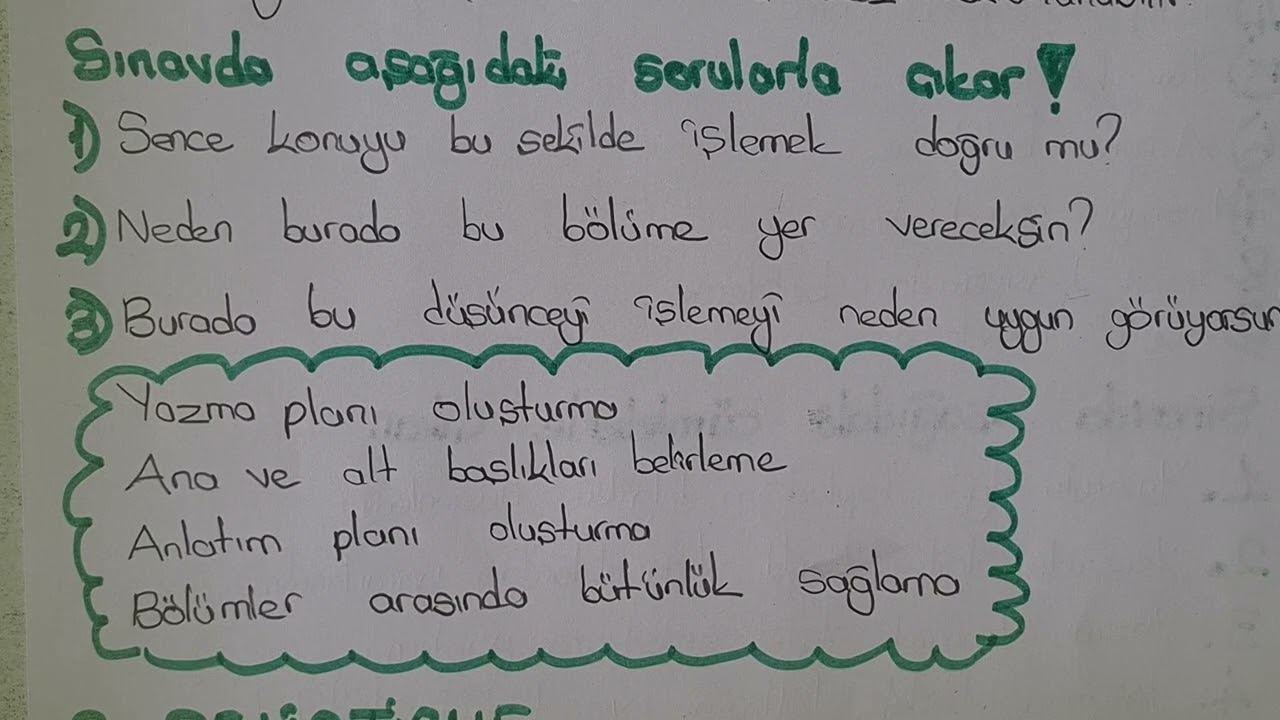 Sınavda aşağıdaki sorularla çıkar!
1) Sence konuyu bu sekilde işlemek doğru mu?
2) Neden burada bu bölüme yer vereceksin?
3) Burada bu düşünceyi işlemeyi neden uygun görüyorsun
Yazma planı oluşturma
Ana ve alt başlıkları belirleme
Anlatım planı oluşturma
Bölümler arasında bütünlük sağlama